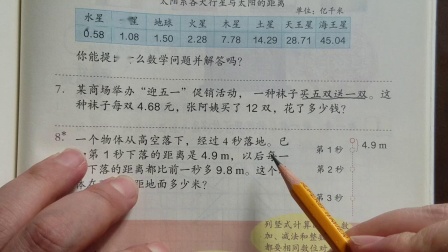 太阳系各大行星与太阳的距离
单位：亿千米
水星 星 地球 火星 木星 土星 天王星 海王星
0.58 1.08 1.50 2.28 7.78 14.29 28.71 45.04
你能提 么数学问题并解答吗？
7. 某商场举办“迎五一”促销活动，一种袜子买五双送一双。这
种袜子每双 4.68 元，张阿姨买了 12 双，花了多少钱？
8* 一个物体从高空落下，经过 4 秒落地。已
第 1 秒下落的距离是 4.9 m，以后每一
下落的距离都比前一秒多 9.8 m。这个
距地面多少米？
第 1 秒 4.9 m
第 2 秒
第 3 秒
列竖式计算 数
加、减法和整
都要相同数位对